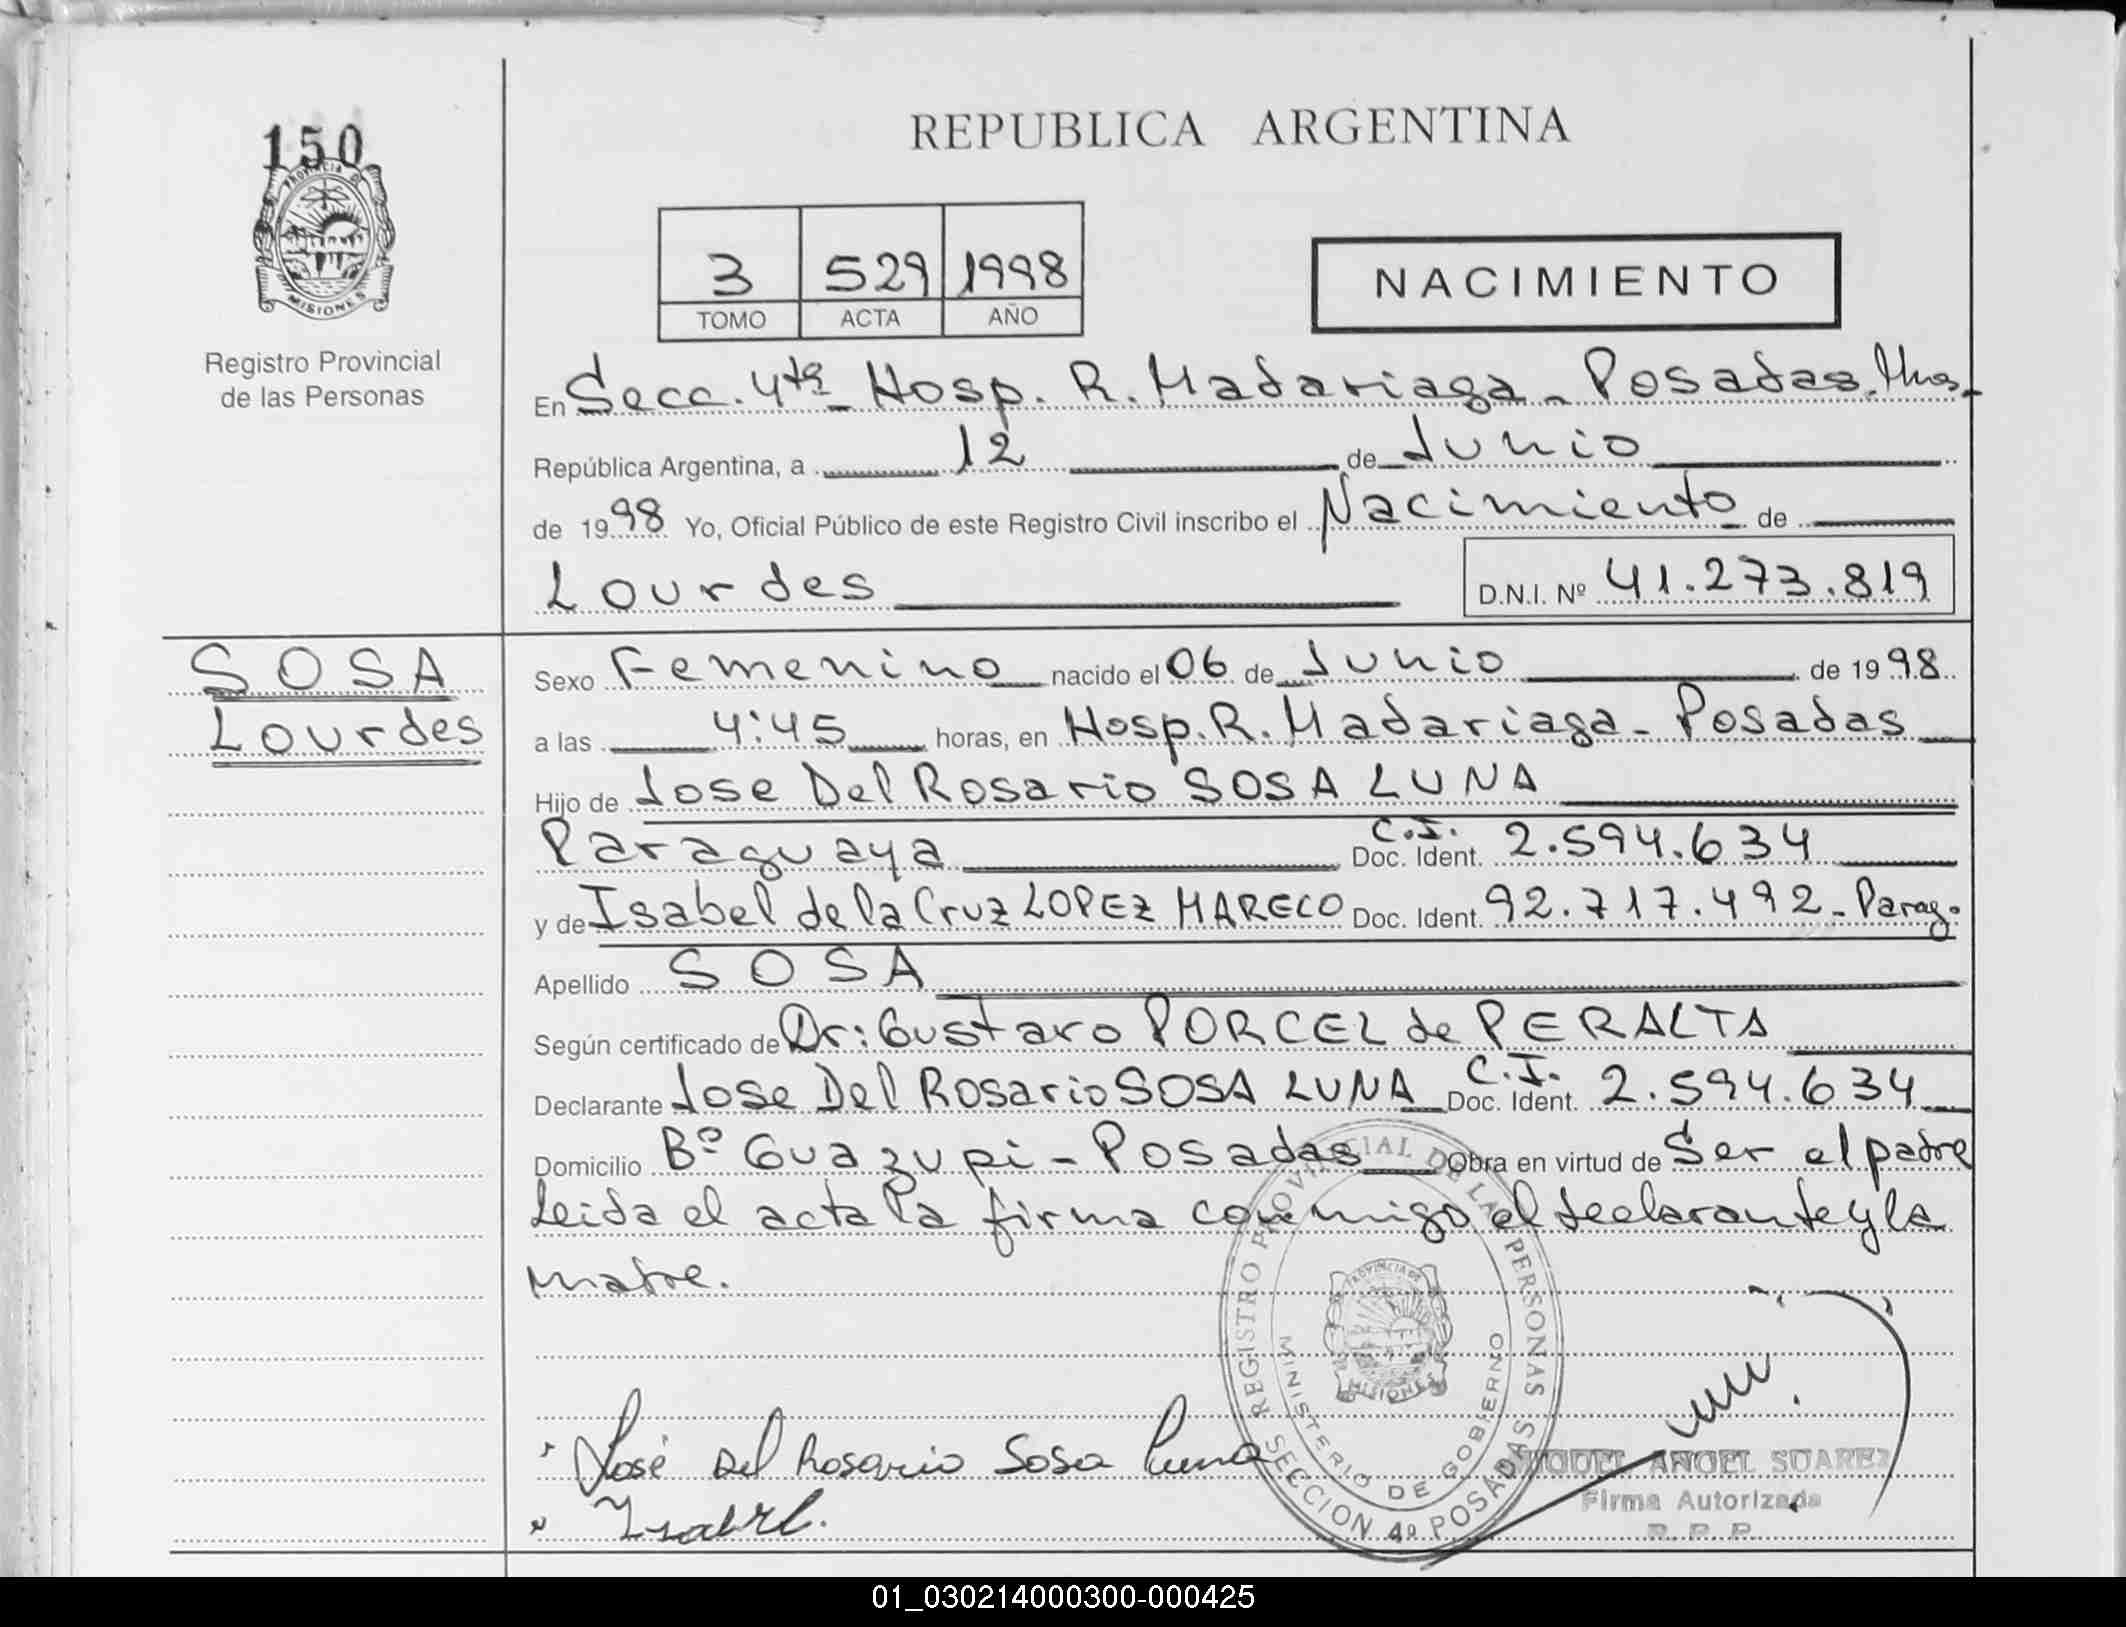 150
PROVINCIA DE
MISIONES
Registro Provincial
de las Personas
REPUBLICA ARGENTINA
3 529 1998
TOMO ACTA AÑO
NACIMIENTO
En Secc. 4ta Hosp. R. Madariaga - Posadas. Mnes.
República Argentina, a 12 de Junio
de 1998 Yo, Oficial Público de este Registro Civil inscribo el Nacimiento de
Lourdes D.N.I. Nº 41.273.819
SOSA
Lourdes
Sexo Femenino nacido el 06 de Junio de 1998
a las 4:45 horas, en Hosp. R. Madariaga - Posadas
Hijo de Jose Del Rosario SOSA LUNA
Paraguaya C.I. Doc. Ident. 2.594.634
y de Isabel de la Cruz LOPEZ MARECO Doc. Ident. 92.717.492 - Parag.
Apellido SOSA
Según certificado de Dr: Gustavo PORCEL de PERALTA
Declarante Jose Del Rosario SOSA LUNA C.I. Doc. Ident. 2.594.634
Domicilio Bº Guazupi - Posadas Obra en virtud de Ser el padre
Leida el acta la firma conmigo el declarante y la
madre.
REGISTRO PROVINCIAL DE LAS PERSONAS
MINISTERIO DE GOBIERNO
PROVINCIA DE
MISIONES
SECCION 4a POSADAS
José Del Rosario Sosa Luna
Isabel.
MIGUEL ANGEL SUAREZ
Firma Autorizada
R. P. P.
01_030214000300-000425